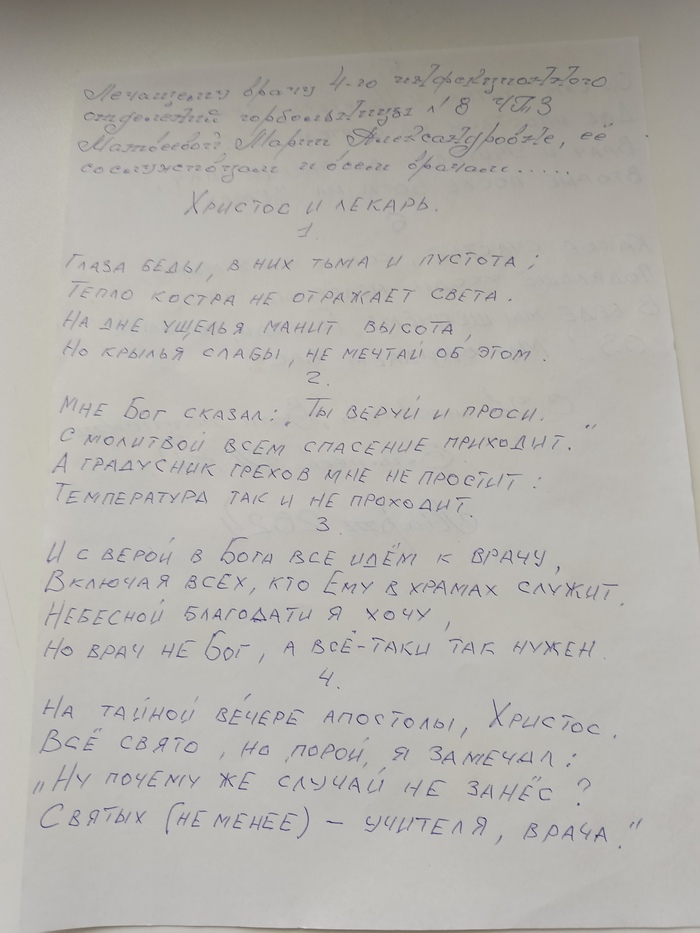 Лечащему врачу 4-го инфекционного
отделения горбольницы № 8 ЧТЗ
Матвеевой Марии Александровне, её
сослуживцам и всем врачам.....
Христос и лекарь.
1.
Глаза беды, в них тьма и пустота;
Тепло костра не отражает света.
На дне ущелья манит высота,
Но крылья слабы, не мечтай об этом.
2.
Мне Бог сказал: „Ты веруй и проси.
С молитвой всем спасение приходит."
А градусник грехов мне не простит:
Температура так и не проходит.
3.
И с верой в Бога все идём к врачу,
Включая всех, кто Ему в храмах служит.
Небесной благодати я хочу,
Но врач не Бог, а всё-таки так нужен.
4.
На тайной вечере апостолы, Христос.
Всё свято, но порой, я замечал:
„Ну почему же случай не занёс?
Святых (не менее) – учителя, врача."